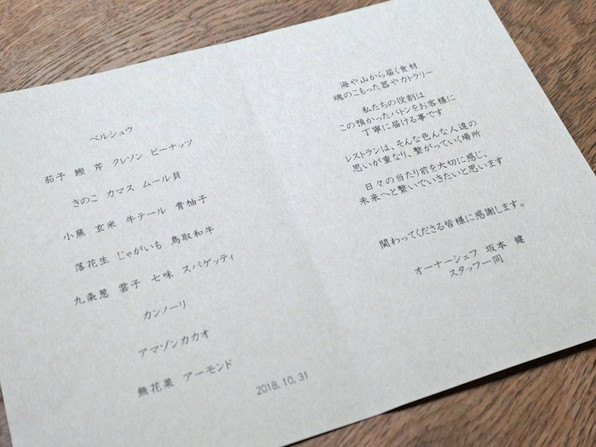 ペルシュウ
茄子 鰹 芹 クレソン ピーナッツ
きのこ カマス ムール貝
小蕪 玄米 牛テール 青柚子
落花生 じゃがいも 鳥取和牛
九条葱 雲子 七味 スパゲッティ
カンノーリ
アマゾンカカオ
無花果 アーモンド
2018.10.31
海や山から届く食材
魂のこもった器やカトラリー
私たちの役割は
この預かったバトンをお客様に
丁寧に届ける事です
レストランは、そんな色んな人達の
思いが重なり、繋がっていく場所
日々の当たり前を大切に感じ、
未来へと繋いでいきたいと思います
関わってくださる皆様に感謝します。
オーナーシェフ 坂本 健
スタッフ一同